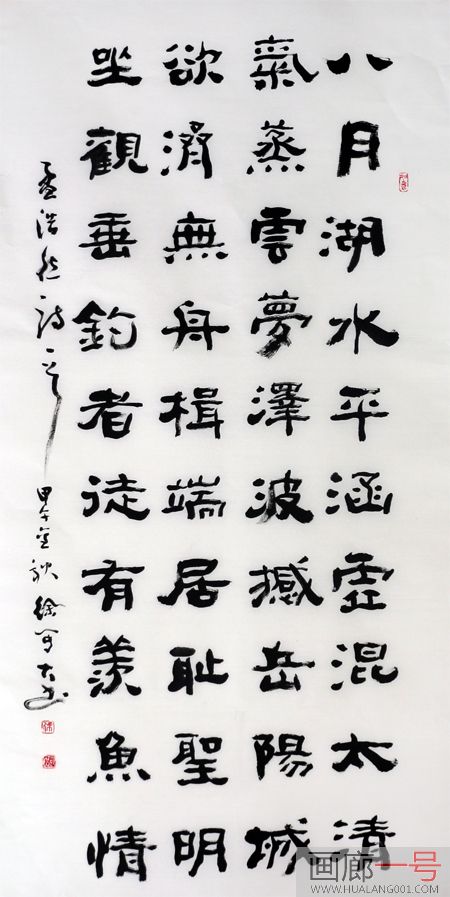 八月湖水平涵虛混太清
氣蒸雲夢澤波撼岳陽城
欲濟無舟楫端居耻聖明
坐觀垂釣者徒有羨魚情
孟浩然詩一首
甲午金秋徐
画廊一号
WWW.HUALANG001.COM